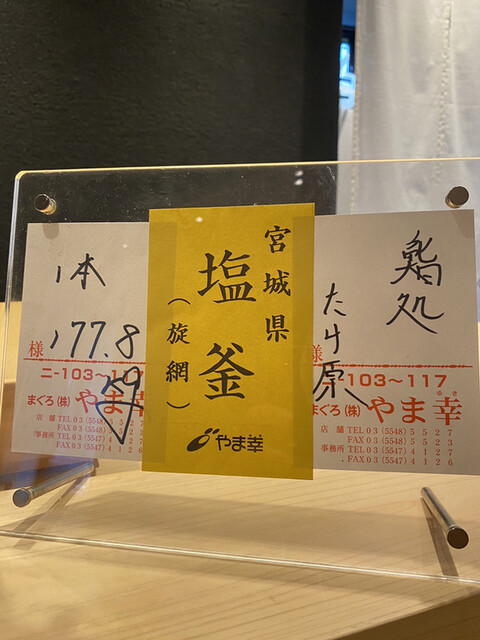 1本
177.8
様
ニ-103〜117
まぐろ(株) やま幸
店舗 TEL 03(5548)5527
FAX 03(5548)5523
事務所 TEL 03(5547)4127
FAX 03(5547)4126
宮城県
塩釜
(旋網)
やま幸
鮨処
原
様
-103〜117
まぐろ(株) やま幸
ゆき
店舗 TEL 03(5548)5527
FAX 03(5548)5523
事務所 TEL 03(5547)4127
FAX 03(5547)4126